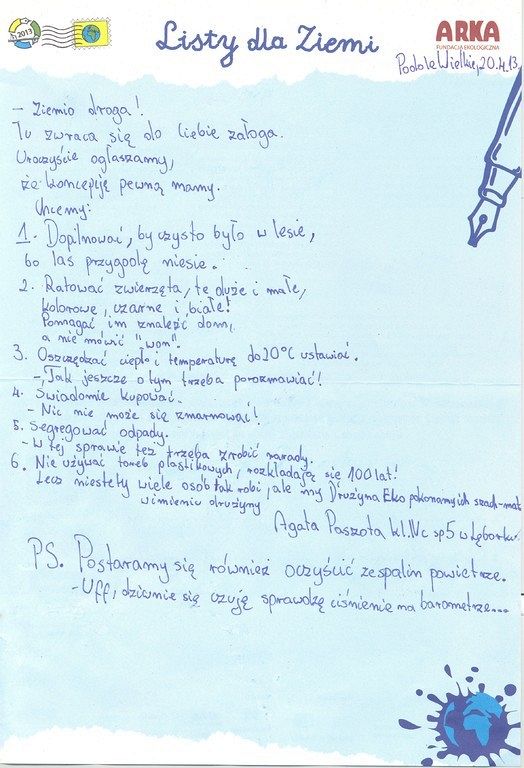 2013
Listy dla Ziemi
ARKA
FUNDACJA EKOLOGICZNA
Podole Wielkie, 20.4.13
- Ziemio droga!
Tu zwraca się do Ciebie załoga.
Uroczyście ogłaszamy,
że koncepcję pewną mamy.
Chcemy:
1. Dopilnować, by czysto było w lesie,
bo las przygodę niesie.
2. Ratować zwierzęta, te duże i małe,
kolorowe, czarne i białe!
Pomagać im znaleźć dom,
a nie mówić "won".
3. Oszczędzać ciepło i temperaturę do 20°C ustawiać.
- Tak jeszcze o tym trzeba porozmawiać!
4. Świadomie kupować.
- Nic nie może się zmarnować!
5. Segregować odpady.
- W tej sprawie też trzeba zrobić narady.
6. Nie używać toreb plastikowych, rozkładają się 100 lat!
Lecz niestety wiele osób tak robi, ale my Drużyna Eko pokonamy ich szach-mat
w imieniu drużyny
Agata Paszota kl. IVc sp 5 w Lęborku
PS. Postaramy się również oczyścić ze spalin powietrze.
- Uff, dziwnie się czuję sprawdzę ciśnienie na barometrze...